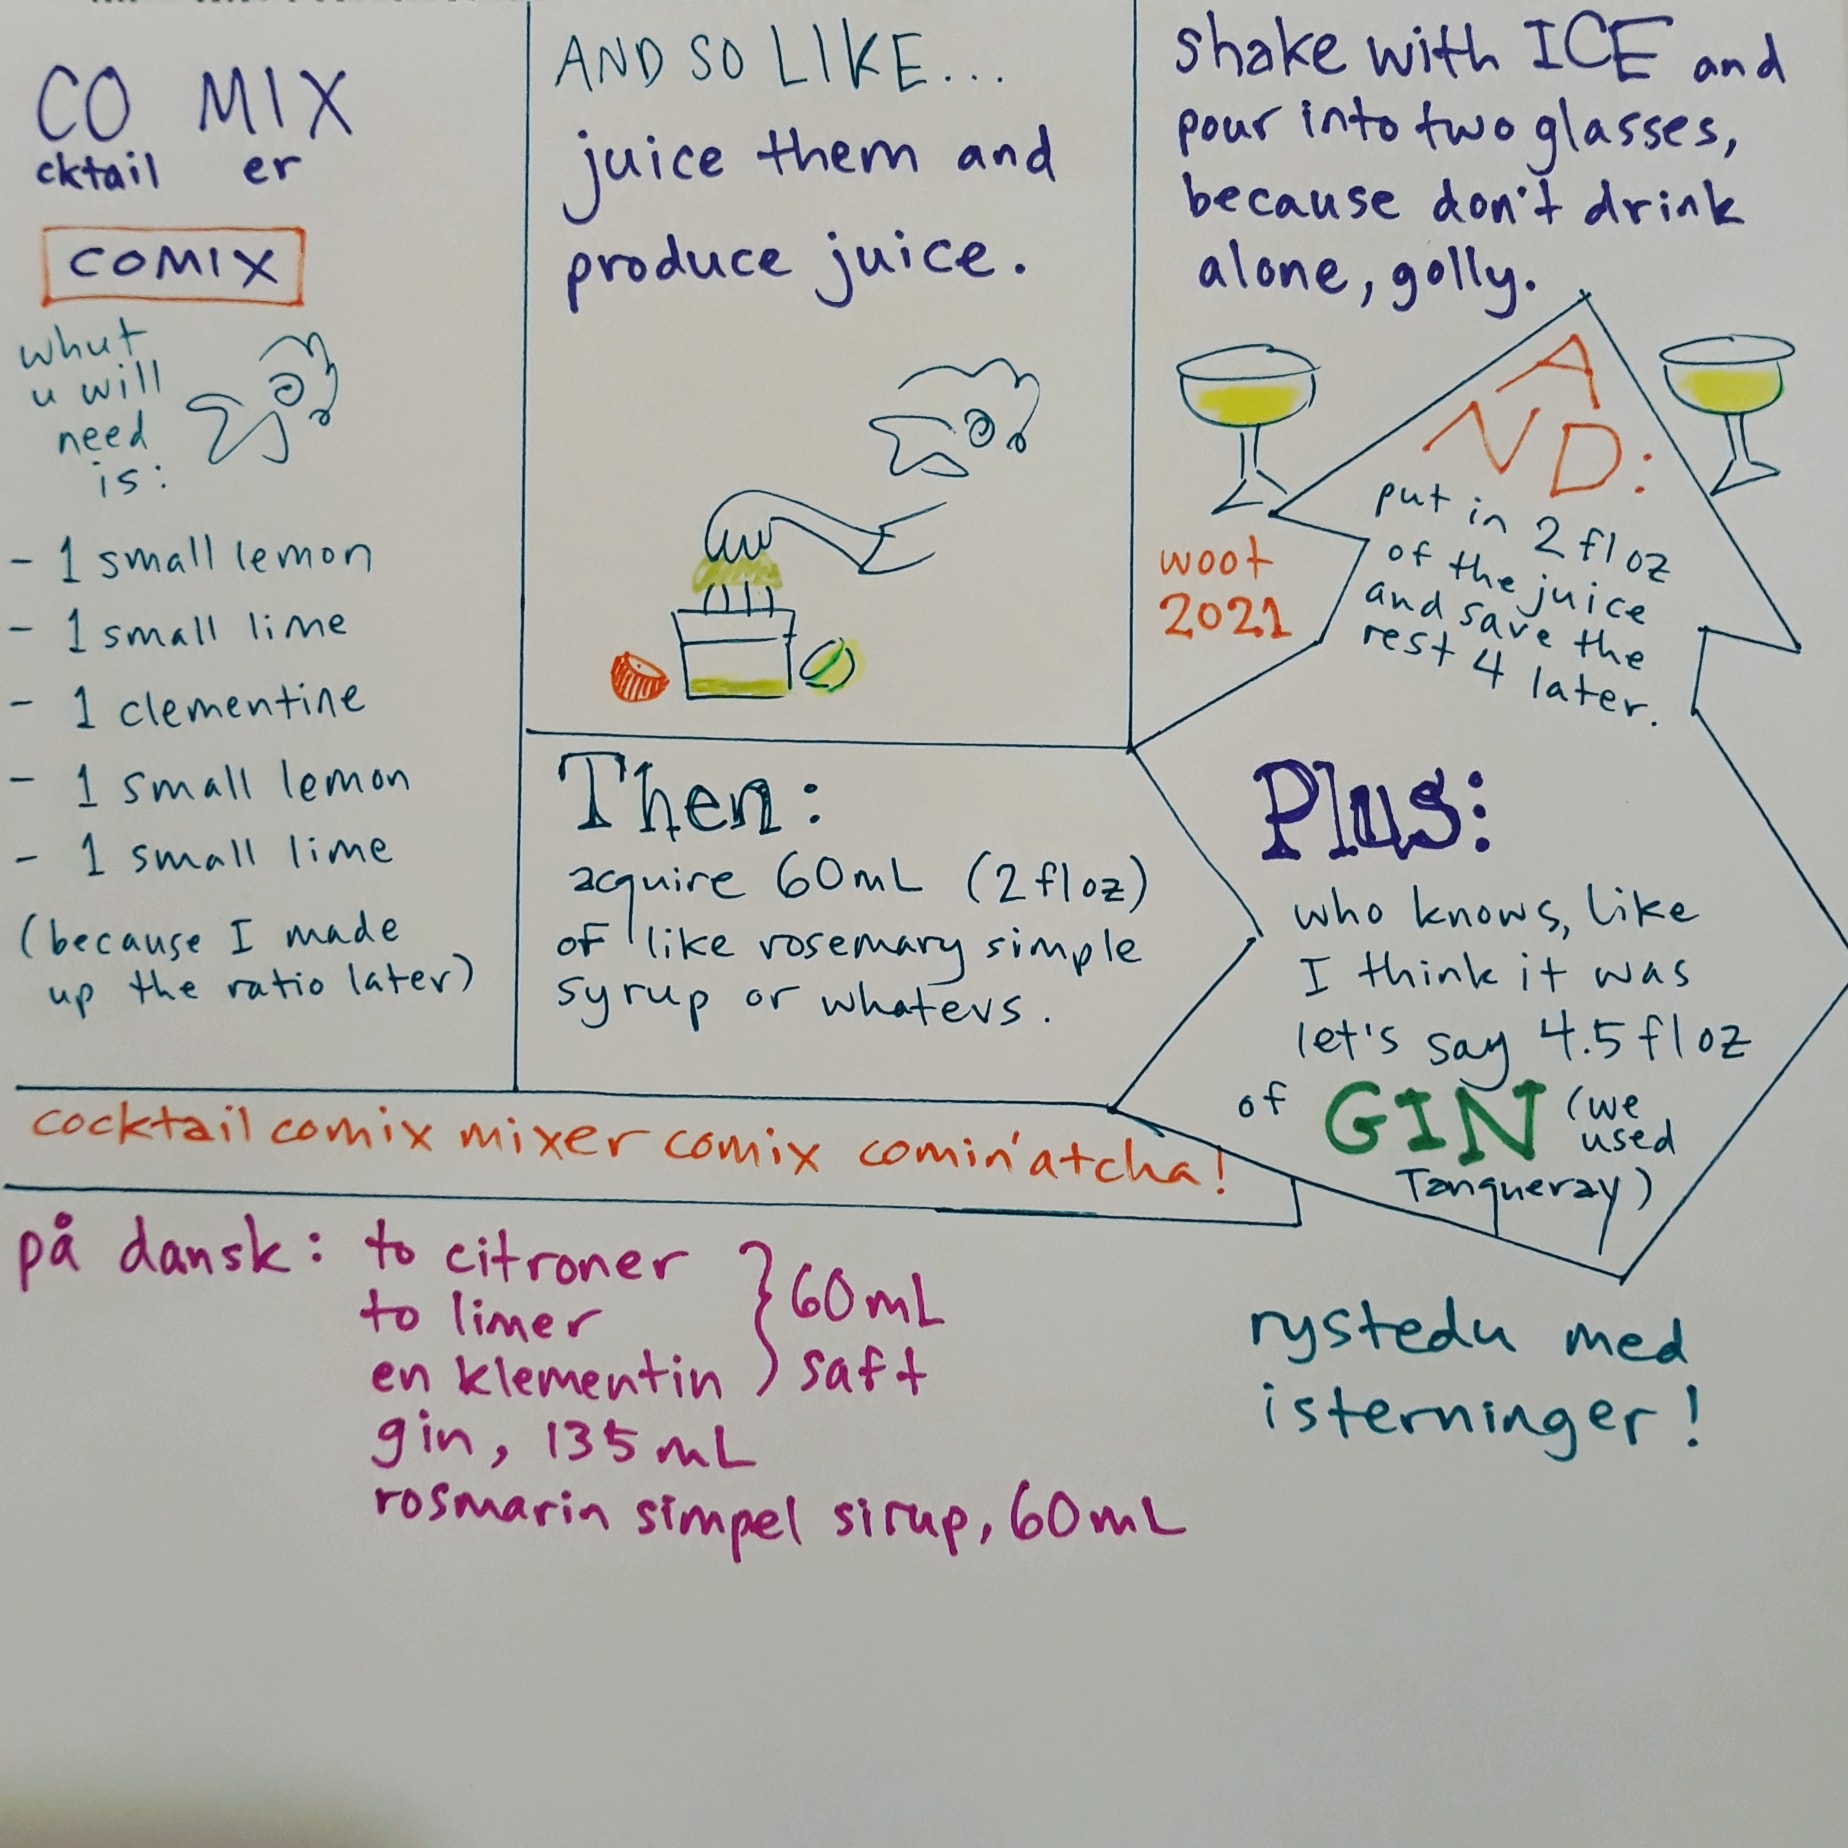 CO MIX
cktail er
COMIX
whut
u will
need
is:
- 1 small lemon
- 1 small lime
- 1 clementine
- 1 small lemon
- 1 small lime
(because I made
up the ratio later)
AND SO LIKE...
juice them and
produce juice.
Then:
acquire 60mL (2 fl oz)
of like rosemary simple
syrup or whatevs.
Plus:
who knows, like
I think it was
let's say 4.5 fl oz
of GIN (we
used
Tanqueray)
A
ND:
put in 2 fl oz
of the juice
and save the
rest 4 later.
shake with ICE and
pour into two glasses,
because don't drink
alone, golly.
woot
2021
cocktail comix mixer comix comin'atcha!
på dansk: to citroner
to limer
en klementin
60mL
saft
gin, 135 mL
rosmarin simpel sirup, 60mL
rystedu med
isterninger!